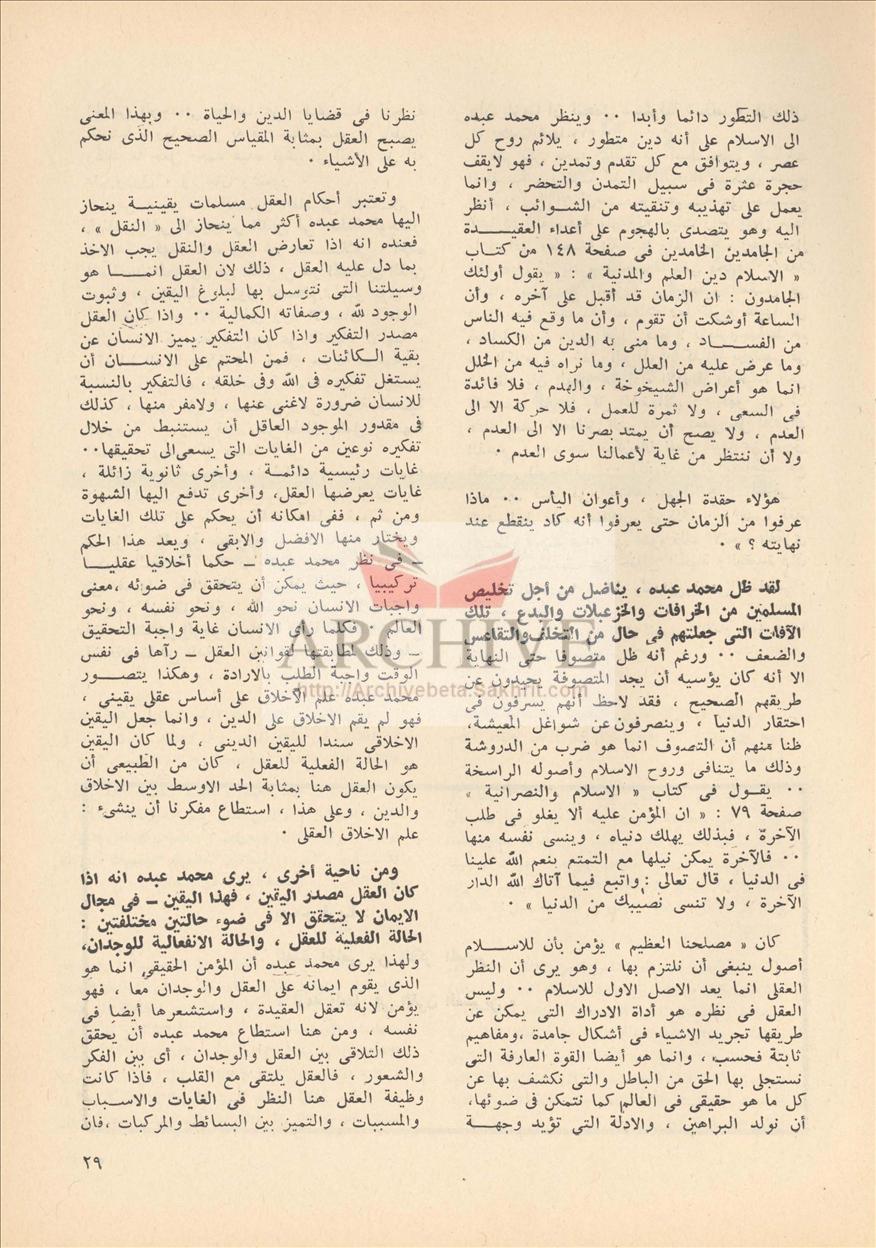 ذلك التطور دائما وأبدا ٠٠ وينظر محمد عبده
الى الاسلام على أنه دين متطور ، يلائم روح كل
عصر ، ويتوافق مع كل تقدم وتمدين ، فهو لايقف
حجرة عثرة فى سبيل التمدن والتحضر ، وانما
يعمل على تهذيبه وتنقيته من الشــوائب ، أنظر
اليه وهو يتصدى بالهجوم على أعداء العقيــدة
من الجامدين الخامدين فى صفحة ١٤٨ من كتــاب
« الاسلام دين العلم والمدنية » : « يقول أولئك
الجامدون : ان الزمان قد أقبل على آخره ، وأن
الساعة أوشكت أن تقوم ، وأن ما وقع فيه الناس
من الفســــاد ، وما منى به الدين من الكساد ،
وما عرض عليه من العلل ، وما نراه فيه من الخلل
انما هو أعراض الشيخوخة ، والهدم ، فلا فائدة
فى السعى ، ولا ثمرة للعمل ، فلا حركة الا الى
العدم ، ولا يصح أن يمتد بصرنا الا الى العدم ،
ولا أن ننتظر من غاية لأعمالنا سوى العدم ٠
هؤلاء حفدة الجهل ، وأعوان اليأس ٠٠ ماذا
عرفوا من الزمان حتى يعرفوا أنه كاد ينقطع عند
نهايته ؟ » ٠
لقد ظل محمد عبده ، يناضل من أجل تخليص
المسلمين من الخرافات والخزعبلات والبدع ، تلك
الآفات التى جعلتهم فى حال من التخلف والتقاعس
والضعف ٠٠ ورغم أنه ظل متصوفا حتى النهاية
الا أنه كان يؤسيه أن يجد المتصوفة يحيدون عن
طريقهم الصحيح ، فقد لاحظ أنهم يسرفون فى
احتقار الدنيا ، وينصرفون عن شواغل المعيشة،
ظنا منهم أن التصوف انما هو ضرب من الدروشة
وذلك ما يتنافى وروح الاسلام وأصوله الراسخة
٠٠ يقــول فى كتاب « الاسلام والنصرانية »
صفحة ٧٩ : « ان المؤمن عليه ألا يغلو فى طلب
الآخرة ، فبذلك يهلك دنياه ، وينسى نفسه منها
٠٠ فالآخرة يمكن نيلها مع التمتع بنعم الله علينا
فى الدنيا ، قال تعالى : واتبع فيما آتاك الله الدار
الآخرة ، ولا تنسى نصيبك من الدنيا » ٠
كان « مصلحنا العظيم » يؤمن بأن للاســلام
أصول ينبغى أن نلتزم بها ، وهو يرى أن النظر
العقلى انما يعد الاصل الاول للاسلام ٠٠ وليس
العقل فى نظره هو أداة الادراك التى يمكن عن
طريقها تجريد الاشياء فى أشكال جامدة ،ومفاهيم
ثابتة فحسب ، وانما هو أيضا القوة العارفة التى
نستجلى بها الحق من الباطل والتى نكشف بها عن
كل ما هو حقيقى فى العالم كما نتمكن فى ضوئها،
أن نولد البراهين ، والادلة التى تؤيد وجهــة
نظرنا فى قضايا الدين والحياة ٠٠ وبهذا المعنى
يصبح العقل بمثابة المقياس الصحيح الذى نحكم
به على الأشياء ٠
وتعتبر أحكام العقل مسلمات يقينيــة ينحاز
اليها محمد عبده أكثر مما ينحاز الى « النقل » ،
فعنده انه اذا تعارض العقل والنقل يجب الاخذ
بما دل عليه العقل ، ذلك لان العقل انمــا هو
وسيلتنا التى نتوسل بها لبلوغ اليقين ، وثبوت
الوجود لله ، وصفاته الكمالية ٠٠ واذا كان العقل
مصدر التفكير واذا كان التفكير يميز الانسان عن
بقية الــكائنات ، فمن المحتم على الانســـان أن
يستغل تفكيره فى الله وفى خلقه ، فالتفكير بالنسبة
للانسان ضرورة لاغنى عنها ، ولامفر منها ، كذلك
فى مقدور الموجود العاقل أن يستنبط من خلال
تفكيره نوعين من الغايات التى يسعى الى تحقيقها٠٠
غايات رئيسية دائمــة ، وأخرى ثانوية زائلة ،
غايات يعرضها العقل، وأخرى تدفع اليها الشهوة
ومن ثم ، ففى امكانه أن يحكم على تلك الغايات
ويختار منها الافضل والابقى ، ويعد هذا الحكم
ــ فى نظر محمد عبده ــ حكما أخلاقيا عقليــا
تركيبيا ، حيث يمكن أن يتحقق فى ضوئه ،معنى
واجبات الانسان نحو الله ، ونحو نفسه ، ونحو
العالم ٠ فكلما رأى الانسان غاية واجبة التحقيق
ــ وذلك لمطابقتها لقوانين العقل ــ رآها فى نفس
الوقت واجبة الطلب بالارادة ، وهكذا يتصــور
محمد عبده علم الاخلاق على أساس عقلى يقينى ،
فهو لم يقم الاخلاق على الدين ، وانما جعل اليقين
الاخلاقى سندا لليقين الدينى ، ولما كان اليقين
هو الحالة الفعلية للعقل ، كان من الطبيعى أن
يكون العقل هنا بمثابة الحد الاوسط بين الاخلاق
والدين ، وعلى هذا ، استطاع مفكرنا أن ينشىء :
علم الاخلاق العقلى ٠
ومن ناحية أخرى ، يرى محمد عبده انه اذا
كان العقل مصدر اليقين ، فهذا اليقين ــ فى مجال
الايمان لا يتحقق الا فى ضوء حالتين مختلفتين :
الحالة الفعلية للعقل ، والحالة الانفعالية للوجدان،
ولهذا يرى محمد عبده أن المؤمن الحقيقى انما هو
الذى يقوم ايمانه على العقل والوجدان معا ، فهو
يؤمن لانه تعقل العقيدة ، واستشعرها أيضا فى
نفسه ، ومن هنا استطاع محمد عبده أن يحقق
ذلك التلاقى بين العقل والوجدان ، أى بين الفكر
والشعور ، فالعقل يلتقى مع القلب ، فاذا كانت
وظيفة العقل هنا النظر فى الغايات والاســباب
والمسببات ، والتميز بين البسائط والمركبات ،فان
٢٩
ARCHIVE
http://Archivebeta.Sakhrit.com